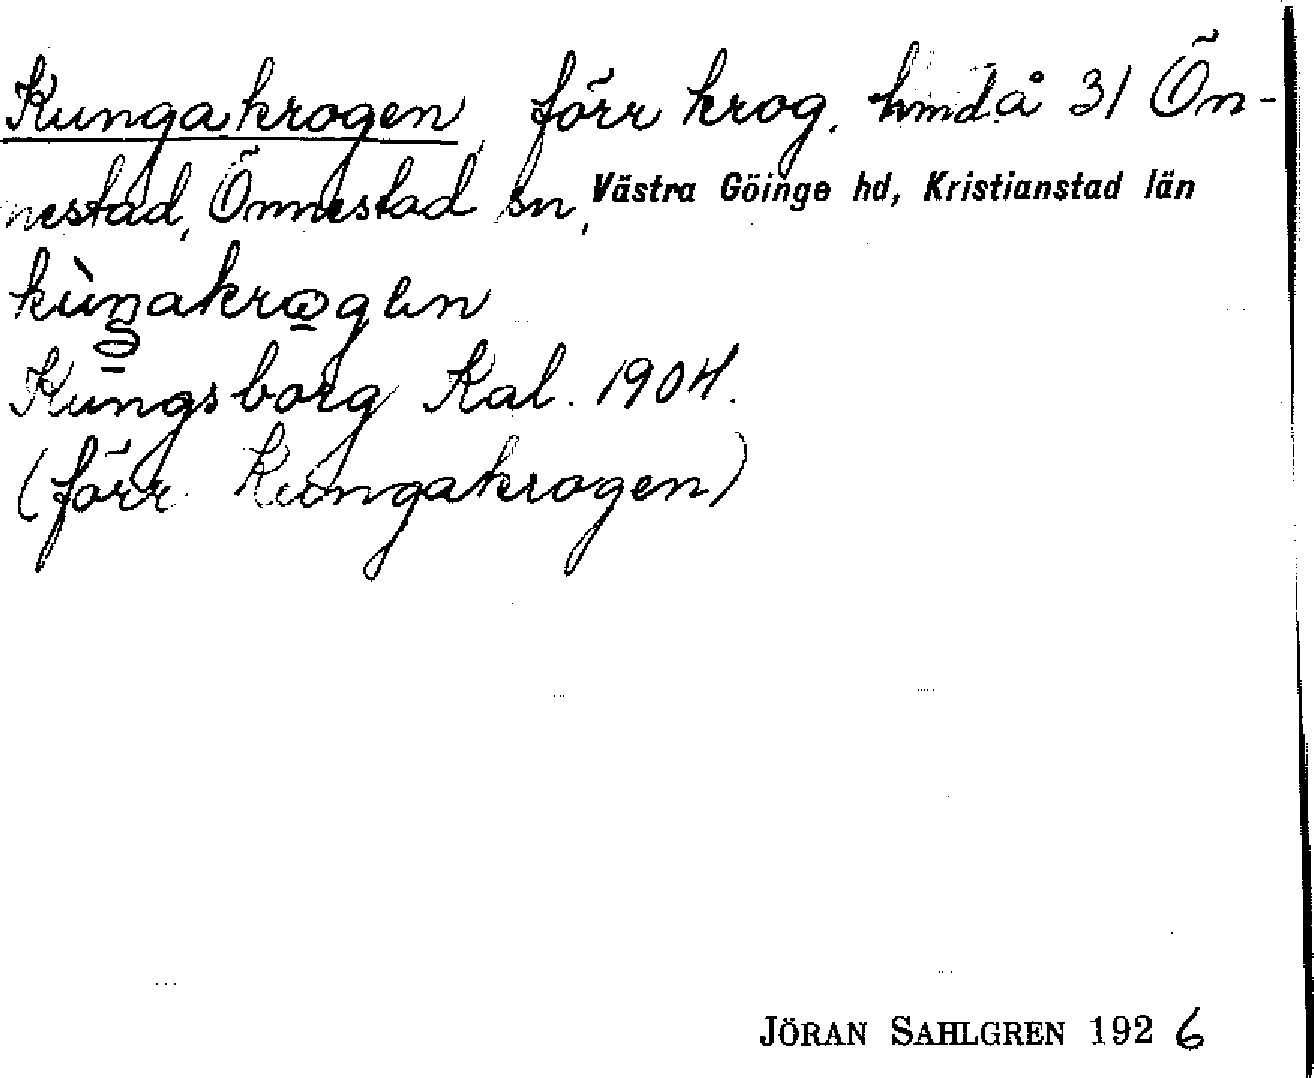 Kungakrogen, förr krog, hmd å 31 Ön-
nestad, Önnestad sn, Västra Göinge hd, Kristianstad län
Kungsborg Kal. 1904.
(förr Kungakrogen)
JÖRAN SAHLGREN 1926